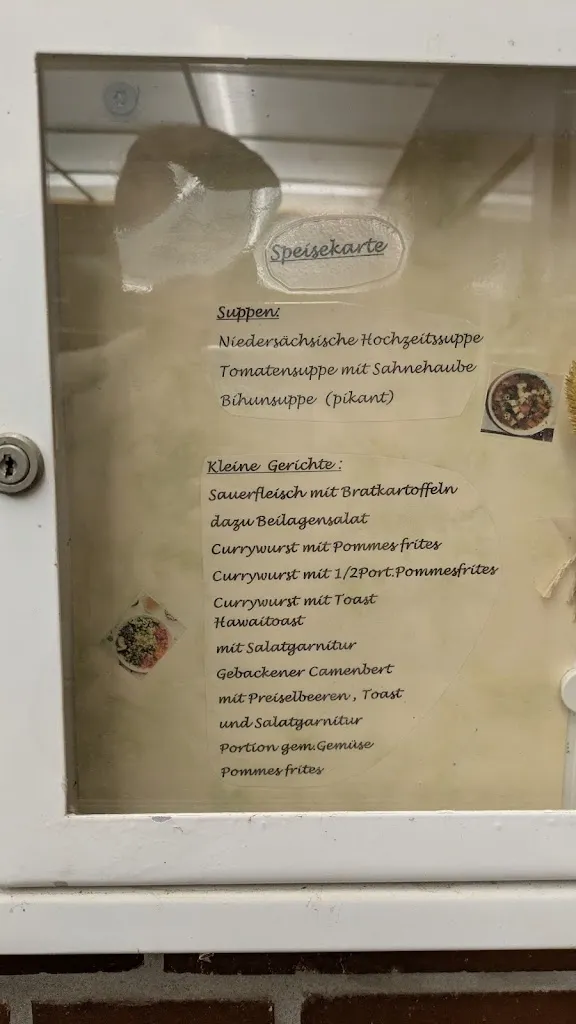 Speisekarte
Suppen:
Niedersächsische Hochzeitssuppe
Tomatensuppe mit Sahnehaube
Bihunsuppe (pikant)
Kleine Gerichte:
Sauerfleisch mit Bratkartoffeln
dazu Beilagensalat
Currywurst mit Pommes frites
Currywurst mit 1/2Port.Pommesfrites
Currywurst mit Toast
Hawaitoast
mit Salatgarnitur
Gebackener Camenbert
mit Preiselbeeren, Toast
und Salatgarnitur
Portion gem.Gemüse
Pommes frites